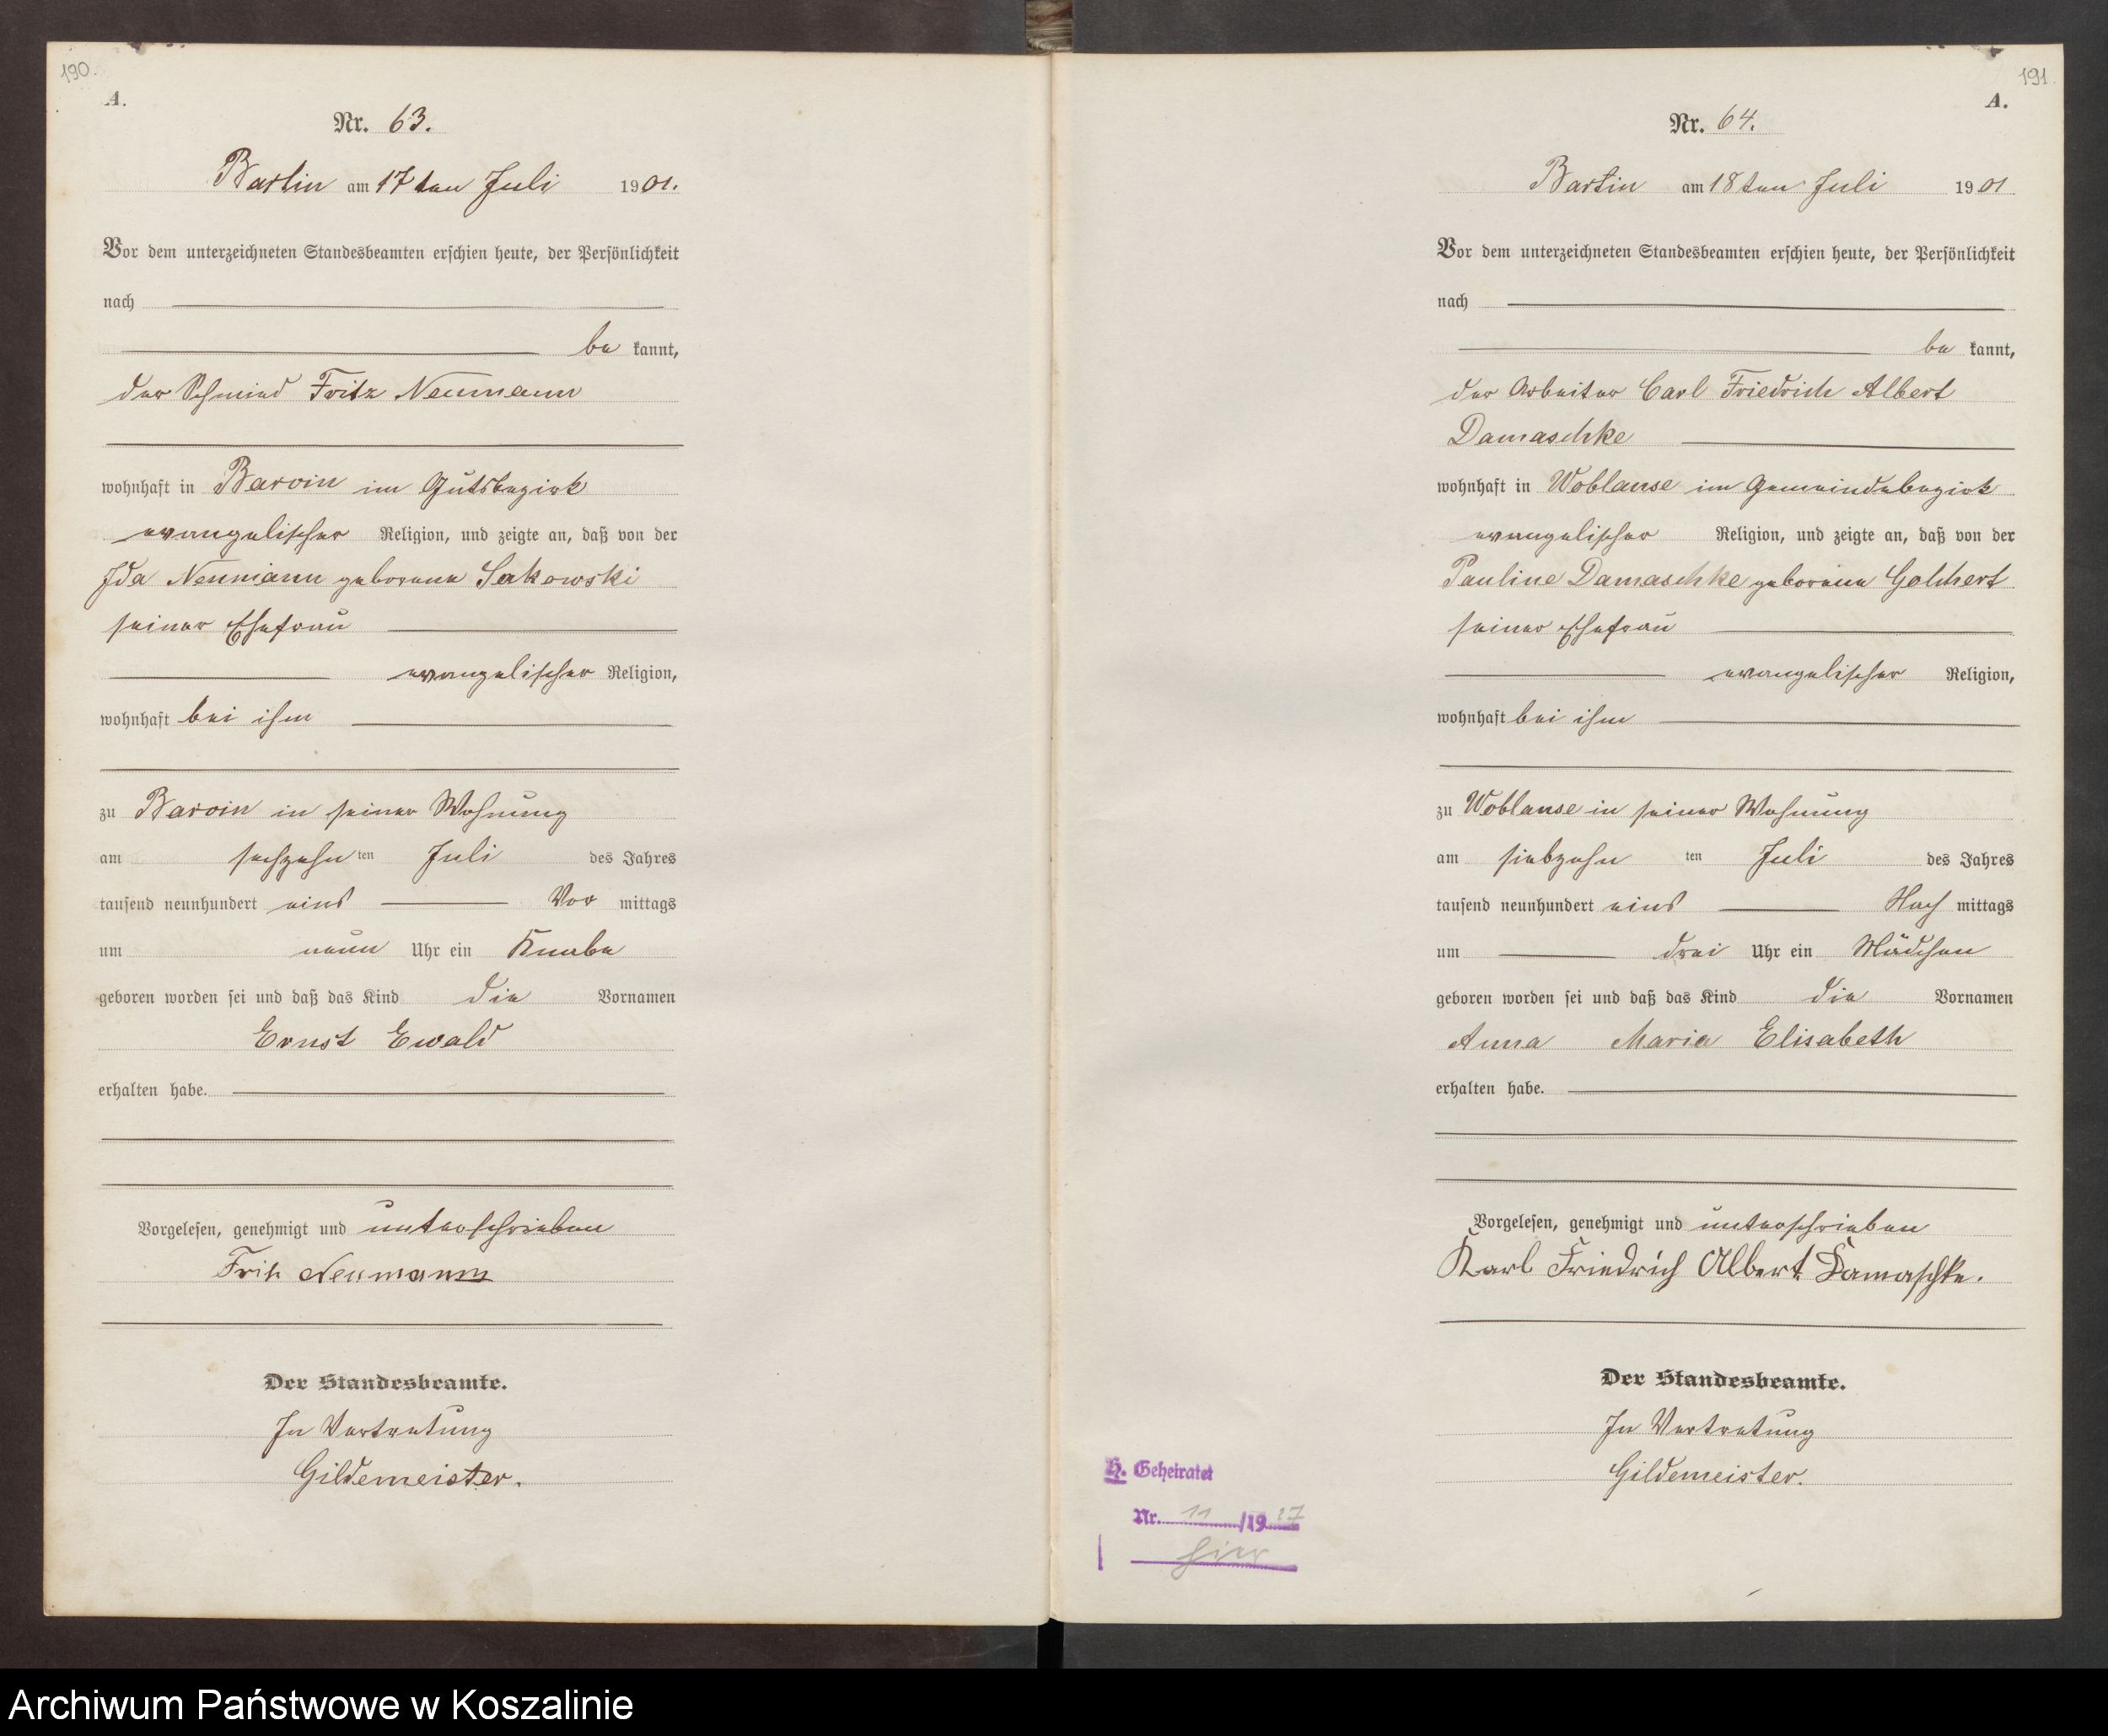 190.
A.
Nr. 63.
Bartin am 17ten Juli 1901.
Vor dem unterzeichneten Standesbeamten erschien heute, der Persönlichkeit
nach
be kannt,
der Schmied Fritz Neumann
wohnhaft in Barvin im Gutsbezirk
evangelischer Religion, und zeigte an, daß von der
Ida Neumann geborene Sakowski
seiner Ehefrau
evangelischer Religion,
wohnhaft bei ihm
zu Barvin in seiner Wohnung
am sechzehn ten Juli des Jahres
tausend neunhundert eins Vor mittags
um neun Uhr ein Knabe
geboren worden sei und daß das Kind die Vornamen
Ernst Ewald
erhalten habe.
Vorgelesen, genehmigt und unterschrieben
Fritz Neumann
Der Standesbeamte.
In Vertretung
Gildemeister.
191.
A.
Nr. 64.
Bartin am 18ten Juli 1901
Vor dem unterzeichneten Standesbeamten erschien heute, der Persönlichkeit
nach
be kannt,
der Arbeiter Carl Friedrich Albert
Damaschke
wohnhaft in Woblanse im Gemeindebezirk
evangelischer Religion, und zeigte an, daß von der
Pauline Damaschke geborene Golchert
seiner Ehefrau
evangelischer Religion,
wohnhaft bei ihm
zu Woblanse in seiner Wohnung
am siebzehn ten Juli des Jahres
tausend neunhundert eins Nach mittags
um drei Uhr ein Mädchen
geboren worden sei und daß das Kind die Vornamen
Anna Maria Elisabeth
erhalten habe.
Vorgelesen, genehmigt und unterschrieben
Karl Friedrich Albert Damaschke.
Der Standesbeamte.
In Vertretung
Gildemeister.
H. Geheiratet
Nr. 11 /1927
hier
Archiwum Państwowe w Koszalinie